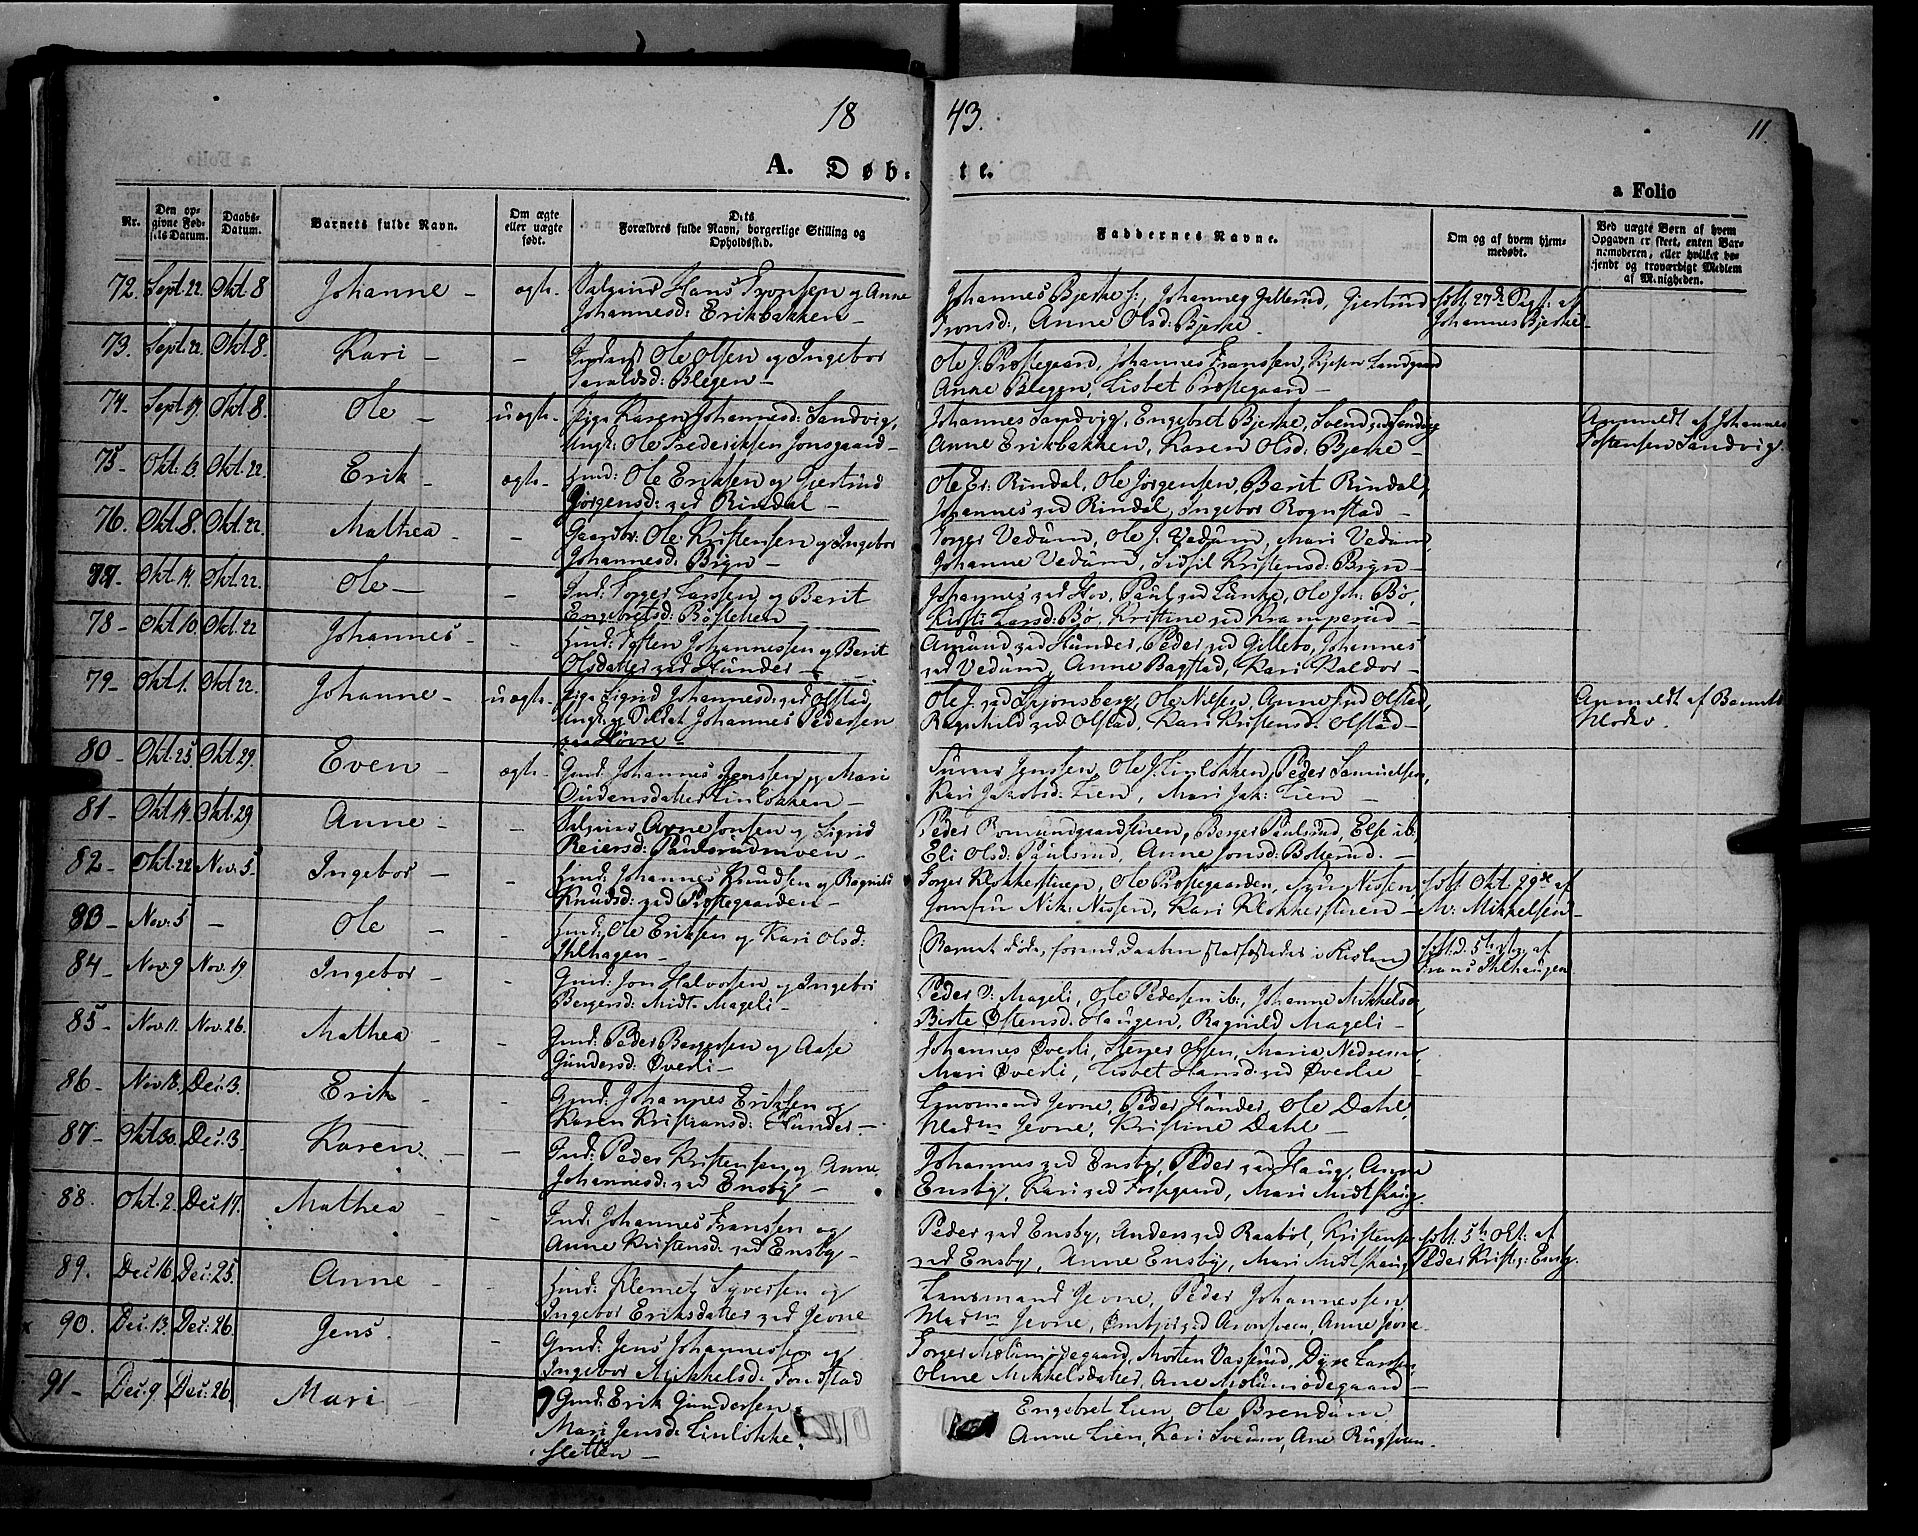 18 43.
11.
A. Døb: te.
a Folio
Nr.
Den op-
givne Fød-
sels Datum.
Daabs-
Datum.
Barnets fulde Navn.
Om ægte
eller uægte
født.
Dets
Forældres fulde Navn, borgerlige Stilling og
Opholdssted.
Faddernes Navne.
Om og af hvem hjem-
medøbt.
Ved uægte Børn af hvem
Opgaven er skeet, enten Bar-
nemoderen, eller hvilket be-
kjendt og troværdigt Medlem
af Menigheden.
72. Sept. 22. Okt. 8 Johanne - ægte. Hans Tronsen og Anne
Johannesd: Erikbakken -
Johannes Bjerke, Johannes Gillerud, Gjertrud
Tronsd:, Anne Olsd: Bjerke.
døbt 27de Sept: af
Johannes Bjerke -
73. Sept. 22. Okt. 8. Kari - - Ole Olsen og Ingebor
Haraldsd: Blegen -
Ole J. Prestegaard, Johannes Franssen, Landgaard
Anne Blegen, Lisbet Prestegaard -
74. Sept 19. Okt. 8. Ole - uægte. Pige Karen Johannesd: Sandvig,
Ungk: Ole Frederiksen Jonsgaard -
Johannes Sandvig, Engebret Bjerke, Svend Sandvig
Anne Erikbakken, Karen Olsd: Bjerke -
Anmeldt af Johannes
Tostensen Sandvig.
75. Okt. 13 Okt. 22. Erik - ægte. Gmd: Ole Eriksen og Gjertrud
Jørgensd: ved Rindal -
Ole Er: Rindal, Ole Jørgensen, Berit Rindal,
Johannes ved Rindal, Ingebor Rognstad -
76. Okt. 8. Okt. 22. Mathea - - Gaardbr: Ole Kristensen og Ingebor
Johannesd: Bryn -
Torger Vedum, Ole J. Vedum, Mari Vedum,
Johanne Vedum, Sidsil Kristensd: Bryn -
77. Okt. 14. Okt. 22. Ole - - Gmd: Torger Larssen og Berit
Engebretsd: Bøslehen -
Johannes ved Hov, Paul ved Lunke, Ole Joh: Bø,
Kirsti Larsd: Bø, Kristine ved Kramperud -
78 - Okt. 10. Okt. 22 Johannes - - Gmd: Johannessen og Berit
Olsdatter ved Hunder -
Amund ved Hunder, Peder ved Gillebo, Johannes
ved Vedum, Anne Bagstad, Kari Kaldor -
79 - Okt. 1. Okt 22. Johanne - uægte. Pige Sigrid Johannesd: ved Olstad,
Ungk. og Soldat Johannes Pedersen
Høvre -
Ole J. ved Skjonsberg, Ole Nilsen, Anne ved Olstad,
Ragnhild ved Olstad, Kari Kristensd: Olstad -
Anmeldt af Barnets
Moder.
80 - Okt. 25. Okt. 29. Even - ægte - Gmd: Johannes Jenssen og Mari
Oudensdatter Linlokken -
Jenssen, Ole J. Linlokken, Peder Samuelsen,
Kari Jakobsd: Lien, Mari Jak: Lien -
81 - Okt. 14. Okt. 29 Anne - - Arne Jonsen og Sigrid
Reiersd: Paulsrudmoen -
Peder Romundgaardstuen, Berger Paulsrud, Else ib:
Eli Olsd: Paulsrud, Anne Jonsd: Bokerud. -
82 - Okt. 22 Nov. 5 - Ingebor - - Gmd: Johannes Knudsen og Ragnild
Knudsd: ved Prestegaarden -
Torger Klokkerstuen, Ole Prestegaarden, Nissen,
Jomfru Nik: Nissen, Kari Klokkerstuen -
døbt. Okt. 29de af
M: Mikkelsen -
83 - Nov. 5 - Ole - - Gmd: Ole Eriksen og Kari Olsd:
Ihlhagen -
(Barnet døde, forind. Daaben stadfæstedes i Kirken)
døbt. d. 5te Nov af
Frans Ihlhaugen
84 - Nov. 9 Nov. 19 Ingebor - - Gmd: Jon Halvorsen og Ingebor
Bergersd: Midt-Mageli -
Peder O: Mageli, Ole Pedersen ib., Johanne Mikkelsd:
Birte Østensd: Haugen, Ragnild Mageli -
85 - Nov. 11. Nov. 26. Mathea - - Gmd: Peder Bergersen og Aase
Gundersd: Øverli -
Johannes Øverli, Steger Olsen, Maria Nedreeng,
Mari Øverli, Lisbet Hansd: ved Øverlie
86 - Nov. 18. Dec. 3. Erik - - Gmd: Johannes Eriksen og
Karen Kristiansd: Hunder -
Lensmand Jevne, Peder Hunder, Ole Dahl,
Madm Jevne, Kristine Dahl -
87 - Okt. 30. Dec. 3. Karen - - Gmd: Peder Kristensen og Anne
Johannesd: ved Ensby -
Johannes ved Ensby, Peder ved Haug, Anne
Ensby, Kari ved Forsegaard, Mari Midtskaug.
88. Okt. 2. Dec. 17. Mathea - - Gmd. Johannes Franssen og
Anne Kristensd: ved Ensby -
Peder ved Ensby, Anders ved Raabøl, Kristense
ved Ensby, Anne Ensby, Mari Midtskaug
døbt. 5te Okt. af
Peder Krist: Ensby.
89. Dec 16. Dec: 25. Anne - - Gmd: Klemet Syversen og
Ingebor Eriksdatter ved Jevne
Lensmand Jevne, Peder Johannessen,
Madm Jevne, Aronsveen, Anne Jevne
90. Dec. 13. Dec. 26. Jens. - Gmd: Jens Johannessen og
Ingebor Mikkelsd: Fonstad
Torger Melumødegaard, Morten Vasrud, Larsen
Oline Mikkelsdatter, Ane Melumødegaard -
91 - Dec. 9. Dec. 26. Mari - Gmd: Erik Gundersen &
Mari Jensd: Linløkke.
sletten -
Engebret Lien, Ole Brendum
Anne Lien, Kari, Ane Rugsveen.